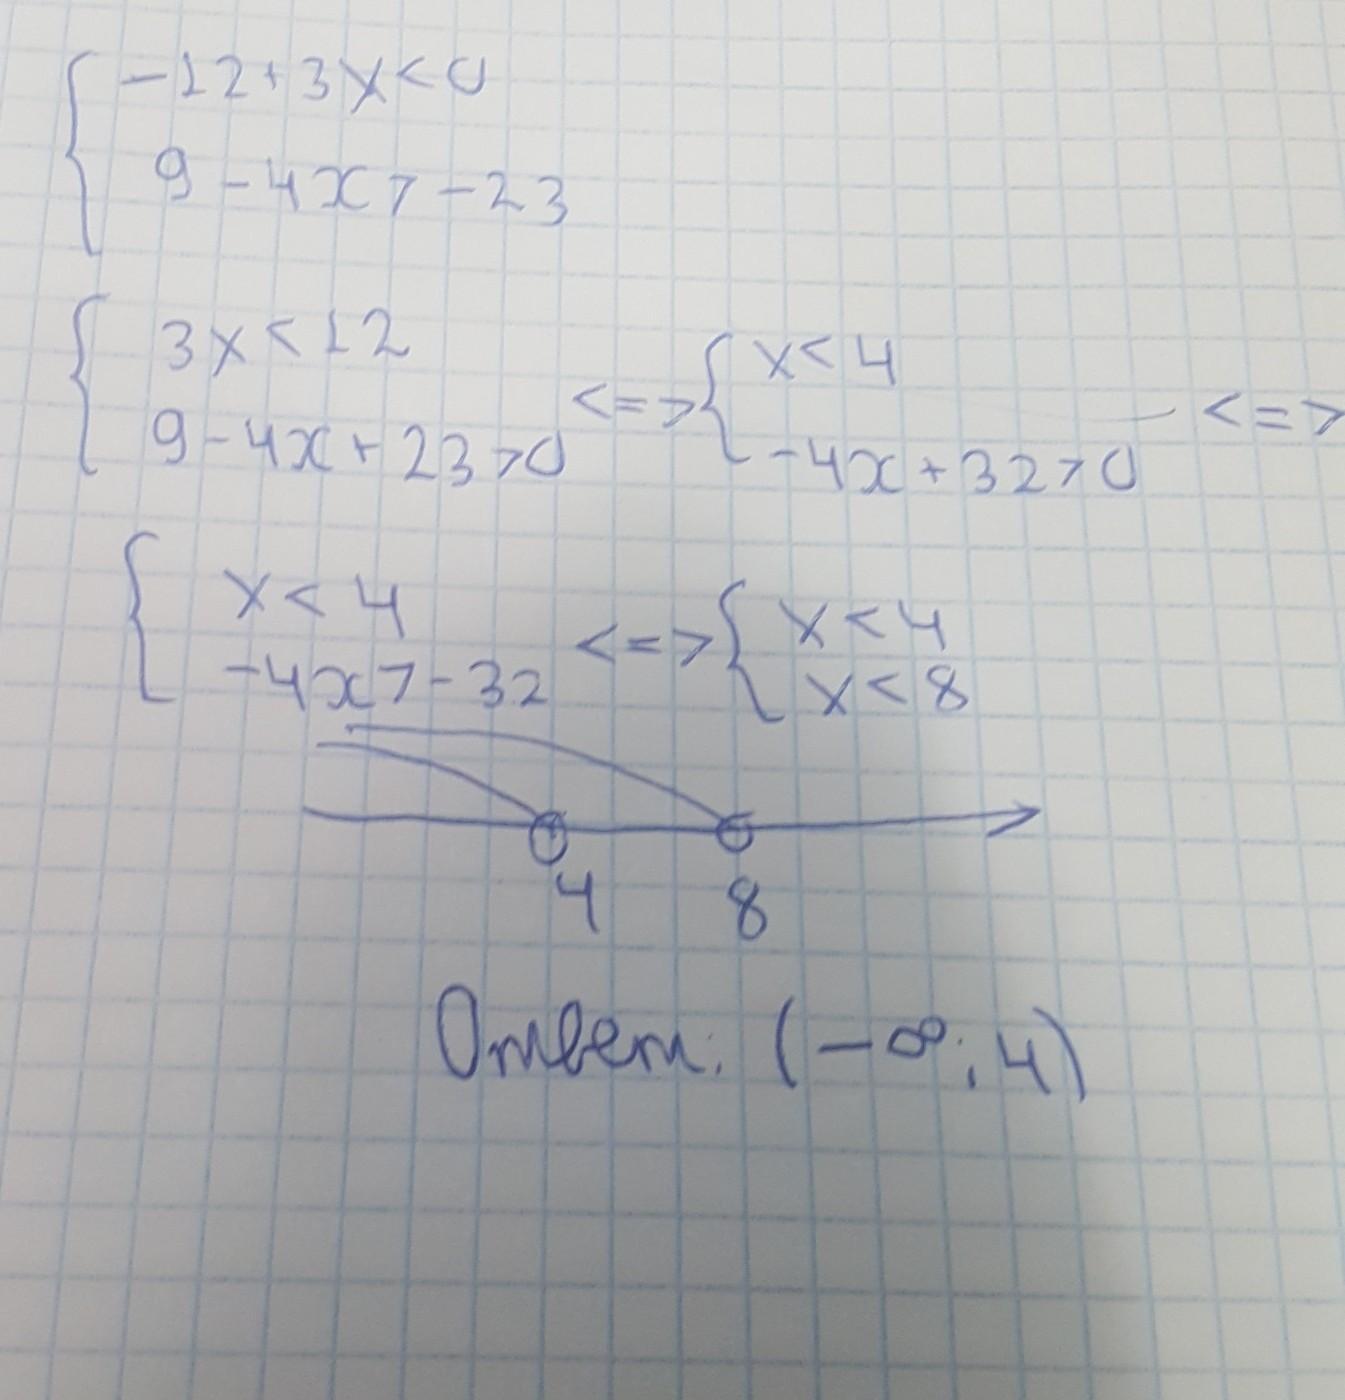 { -12+3x<0
9-4x>-23
{ 3x<12 <=> { x<4 <=>
9-4x+23>0 -4x+32>0
{ x<4 <=> { x<4
-4x>-32 x<8
4 8
Ответ: (-∞; 4)